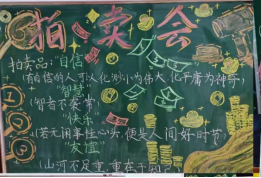 拍卖会
拍卖品:“自信”
(有自信的人可以化渺小为伟大,化平庸为神奇)
“智慧”
(智者不袭常)
“快乐”
(若无闲事挂心头,便是人间好时节)
“友谊”
(山河不足重,重在